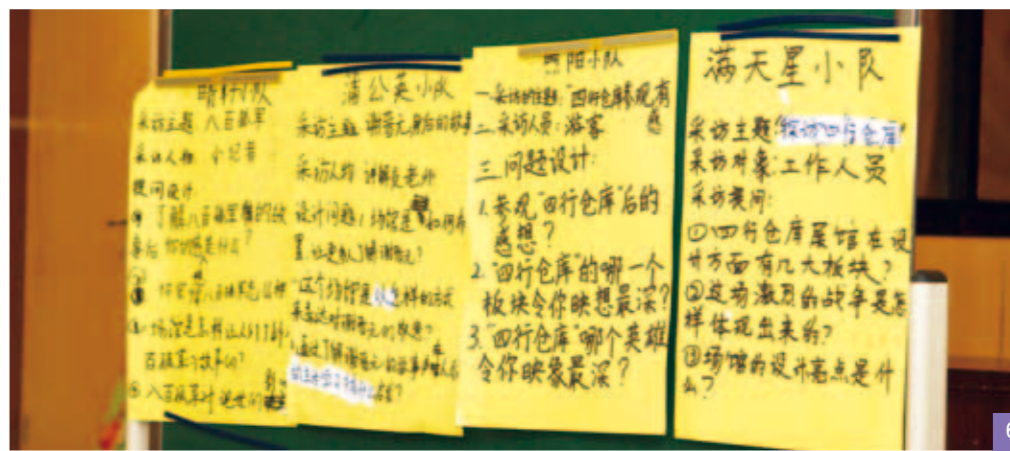 小队
采访主题 八百孤军
采访人物 小记者
提问设计
了解八百孤军的故
事后 什么?
场馆是怎样让人们了解八
百孤军的故事的?
④八百孤军对后世的
蒲公英小队
采访主题 谢晋元身后的故事
采访人物 讲解员老师
设计问题 1.场馆是如何布
置,让更多人了解谢晋元?
这个场馆是以怎样的方式
来表达对谢晋元的敬意?
小队
一.采访的主题:"四行仓库参观有感
二.采访人员:游客
三.问题设计:
1.参观"四行仓库"后的
感想?
2."四行仓库"的哪一个
板块令你映想最深?
3."四行仓库"哪个英雄
令你映像最深?
满天星小队
采访主题:"探访四行仓库"
采访对象:工作人员
采访提问:
①四行仓库展馆在设
计方面有几大板块?
②这场激烈的战争是怎
样体现出来的?
③场馆的设计亮点是什
么?